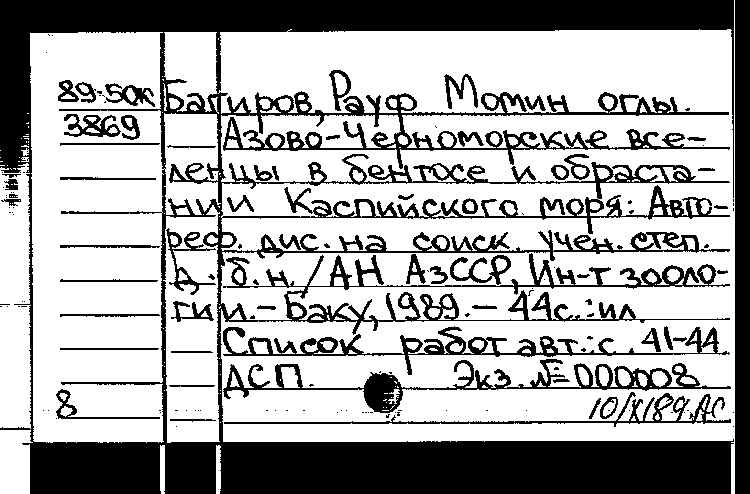 89-50К Багиров, Рауф Момин оглы.
3869 Азово-Черноморские все-
ленцы в бентосе и обраста-
нии Каспийского моря: Авто-
реф. дис. на соиск. учен. степ.
д. б. н. / АН АзССР, Ин-т зооло-
гии. - Баку, 1989. - 44с.: ил.
Список работ авт.: с. 41-44
ДСП. Экз. № 000008
8
10/X189. АС